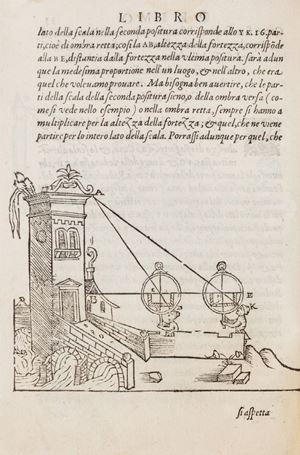 LIBRO
lato della scala nella seconda postura corrisponde allo Y K. 16. par-
ti, cioè di ombra retta; così la AB, altezza della fortezza, corrispōde
alla B E, distantia dalla fortezza nella vltima postura. sarà adun
que la medesima proportione nell un luogo, & nell'altro, che era
quel che voleuamo prouare. Ma bisogna ben auertire, che le par-
ti della scala della seconda postura sieno, ò della ombra versa (co-
me si vede nello esempio) ò nella ombra retta, sempre si hanno a
multiplicare per la altezza della fortezza; & quel, che ne viene
partire per lo intero lato della scala. Porrassi adunque per quel, che
A
E
K
si aspetta